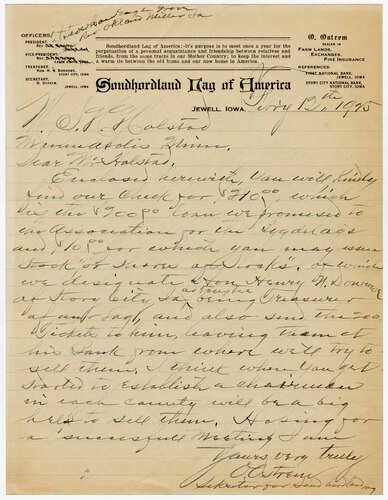 OFFICERS:
PRESIDENT:
VICE-PRESIDENT:
TREASURER
HON. H. N. DONHOWE,
STORY CITY, IA.
SECRETARY,
O. OSTREM
JEWELL, IOWA
Sondhordland Lag of America:-It's purpose is to meet once a year for the
perpetuation of a personal acquaintance and friendship between relatives and
friends, from the same tracts in our Mother Country; to keep the interest and
a warm tie between the old home and our new home in America.
O. Ostrem
DEALER IN
FARM LANDS,
EXCHANGES,
FIRE INSURANCE
REFERENCES:
FIRST NATIONAL BANK,
JEWELL, IOWA
STORY CITY NATIONAL BANK,
STORY CITY, IA.
Sondhordland Lag of America
JEWELL, IOWA, 12th 1925
Holstad
Minneapolis Minn.
Dear Mr Holstad:
Enclosed herewith, you will kindly
find our check for $210.00, which
is the $200.00 loan we promised to
the Association for the Bygdelags
and $10.00 for which you may issue
Stock or Shares of
we designate Hon Henry N. Donhowe
of Story City Ia, as Trustee our Treasurer
of our Lag, and also send the 200
Tickets to him, leaving them at
his Bank from where will try to
sell them. I think when you get
started to establish a chairman
in each county will be a big
help to sell them. Hoping for
a successful Meeting I am
Yours very truly
O Ostrem
Sekretær for Sondhordlandlag